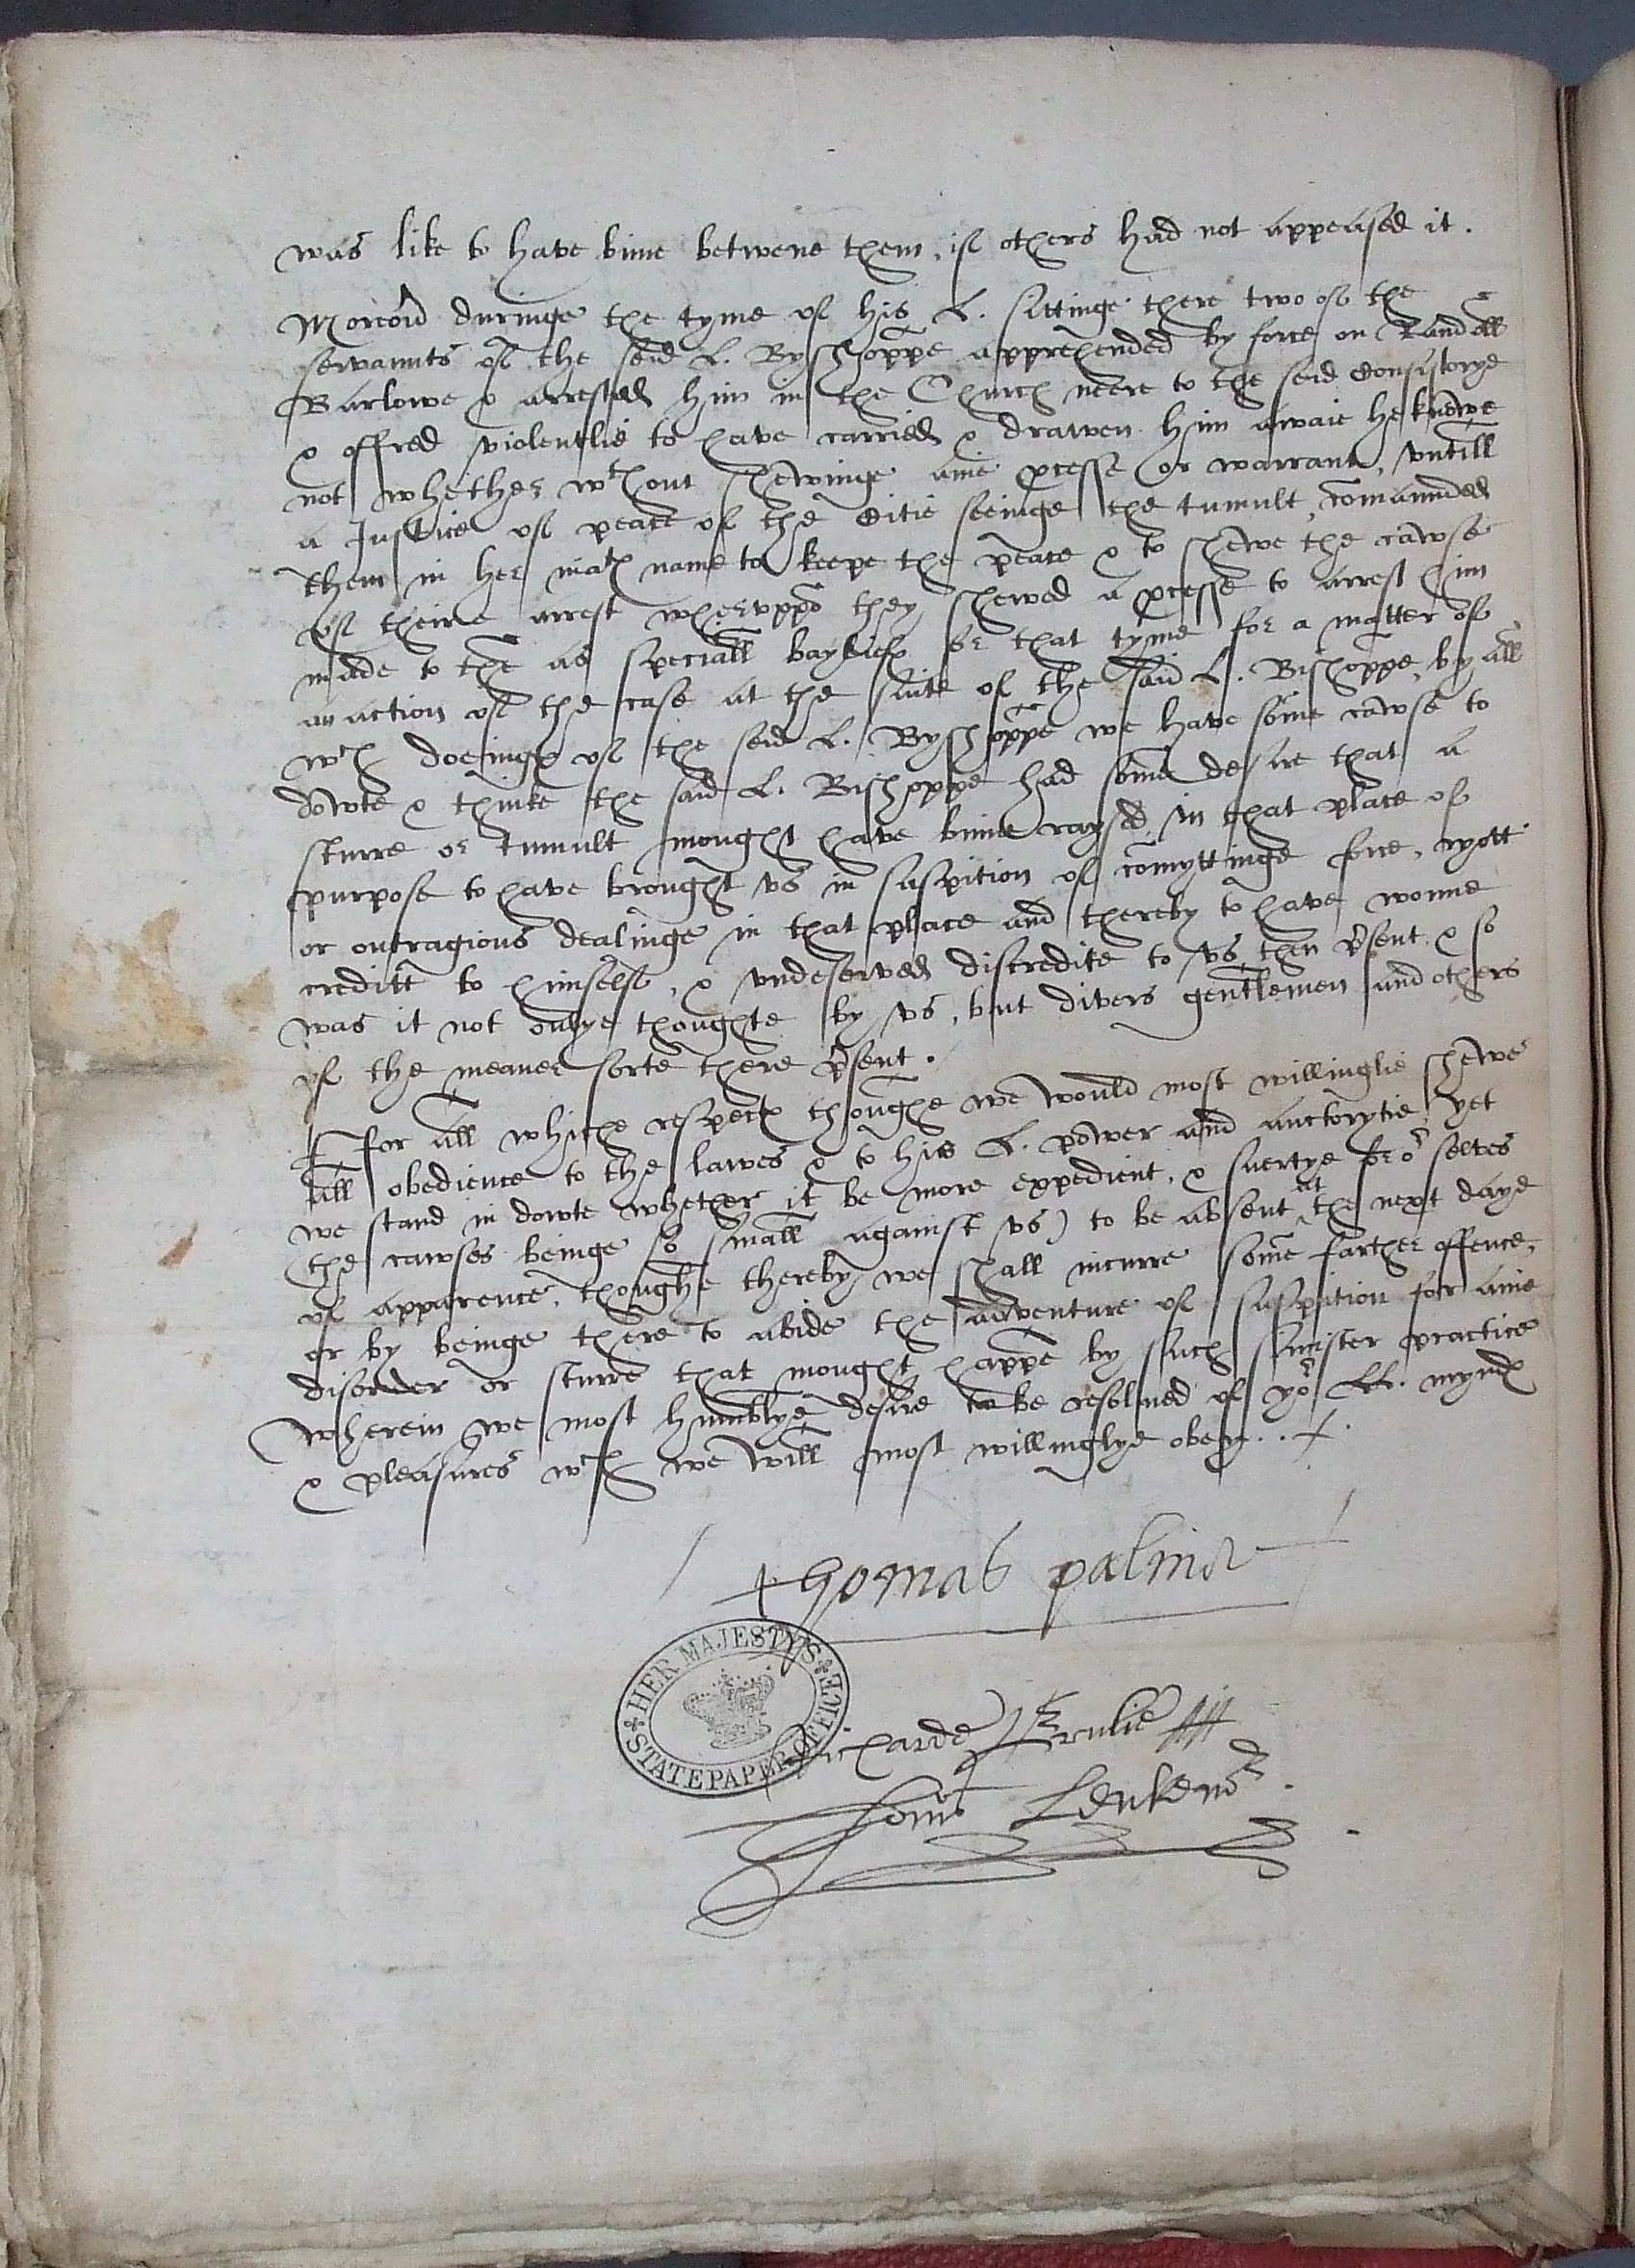 was like to have bine betwene them, if others had not appeased it.
Moreou9 duringe the tyme of his L. sittinge there two of the
servaunts of the said L. Byshoppe apprehended by force on Randall
Barlowe & arrested him in the Church neere to the said Consistorye
& offred violentlie to have carried & drawen him awaie he knewe
not whether wthout shewinge anie pcesse or warrant, vntill
a Justice of peace of the Citie seeinge the tumult, comaunded
them in her mats name to keepe the peace & to shewe the cawse
of theire arrest whervppo they shewed a pcesse to arrest him
made to the as speciall baylies for that tyme for a matter of
an action of the case at the suite of the said L. Bishoppe, by all
wch doeinge of the said L. Byshoppe we have some cawse to
dowte & thinke the said L. Bishoppe had some desire that a
sturre or tumult mought have bine raysed in that place of
purpose to have brought vs in suspition of comyttinge force, ryott
or outragious dealinge in that place and thereby to have wonne
creditt to himselfe, & vndeserved discredite to vs then psent & so
was it not onlye thoughte by vs, but divers gentlemen and others
of the meaner sorte there psent.
For all whiche respects thoughe we would most willinglie shewe
all obedience to the lawes & to his L. power and auctorytie, yet
we stand in dowte whether it be more expedient, & suertye for or selves
(the cawses beinge so small against vs) to be absent at the next daye
of apparence, thoughe thereby we shall incurre some farther offence,
or by beinge there to abide the adventure of suspition for anie
disorder or sturre that mought happe by such sinister practice
wherein we most humblye desire to be resolued of yor LL. mynds
& pleasures wch we will most willinglye obey..
Thomas palmer
HER MAJESTY'S STATE PAPER OFFICE
Richarde Ernlie
Thoms Leukenor